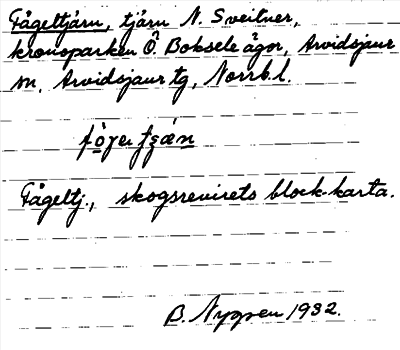 Fågeltjärn, tjärn N. Sveitner,
kronoparken Ö. Boksele ägor, Arvidsjaur
sn, Arvidsjaur tg, Norrb. l.
Fågeltj., skogsrevirets block-karta.
B. Nygren 1932.